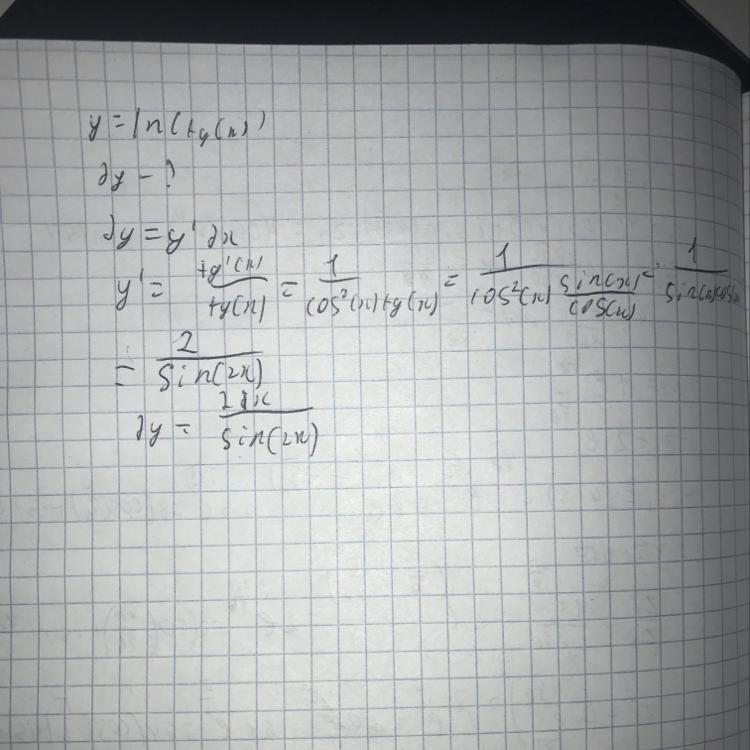 y = ln(tg(x))
dy - ?
dy = y' dx
y' = tg'(x) / tg(x) = 1 / (cos²(x) tg(x)) = 1 / (cos²(x) sin(x)/cos(x)) = 1 / (sin(x)cos(x))
= 2 / sin(2x)
dy = 2dx / sin(2x)